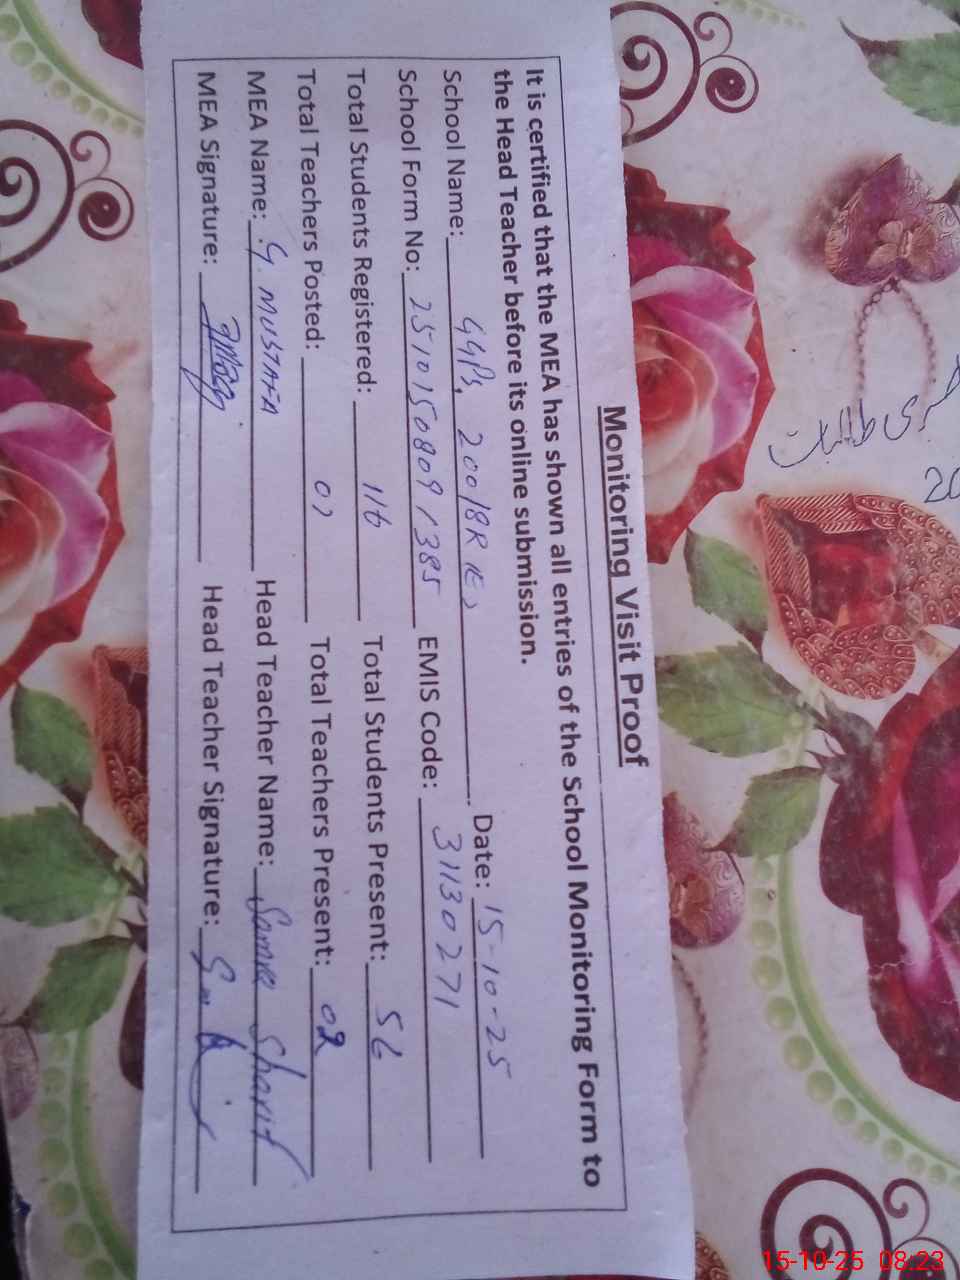 Monitoring Visit Proof
It is certified that the MEA has shown all entries of the School Monitoring Form to
the Head Teacher before its online submission.
School Name: GGPS, 200/8R (E) Date: 15-10-25
School Form No: 25101508091385 EMIS Code: 31130271
Total Students Registered: 116 Total Students Present: 56
Total Teachers Posted: 02 Total Teachers Present: 02
MEA Name: G. MUSTAFA Head Teacher Name: Samra Sharif
MEA Signature: Head Teacher Signature:
طالبات
20
15-10-25 08:23